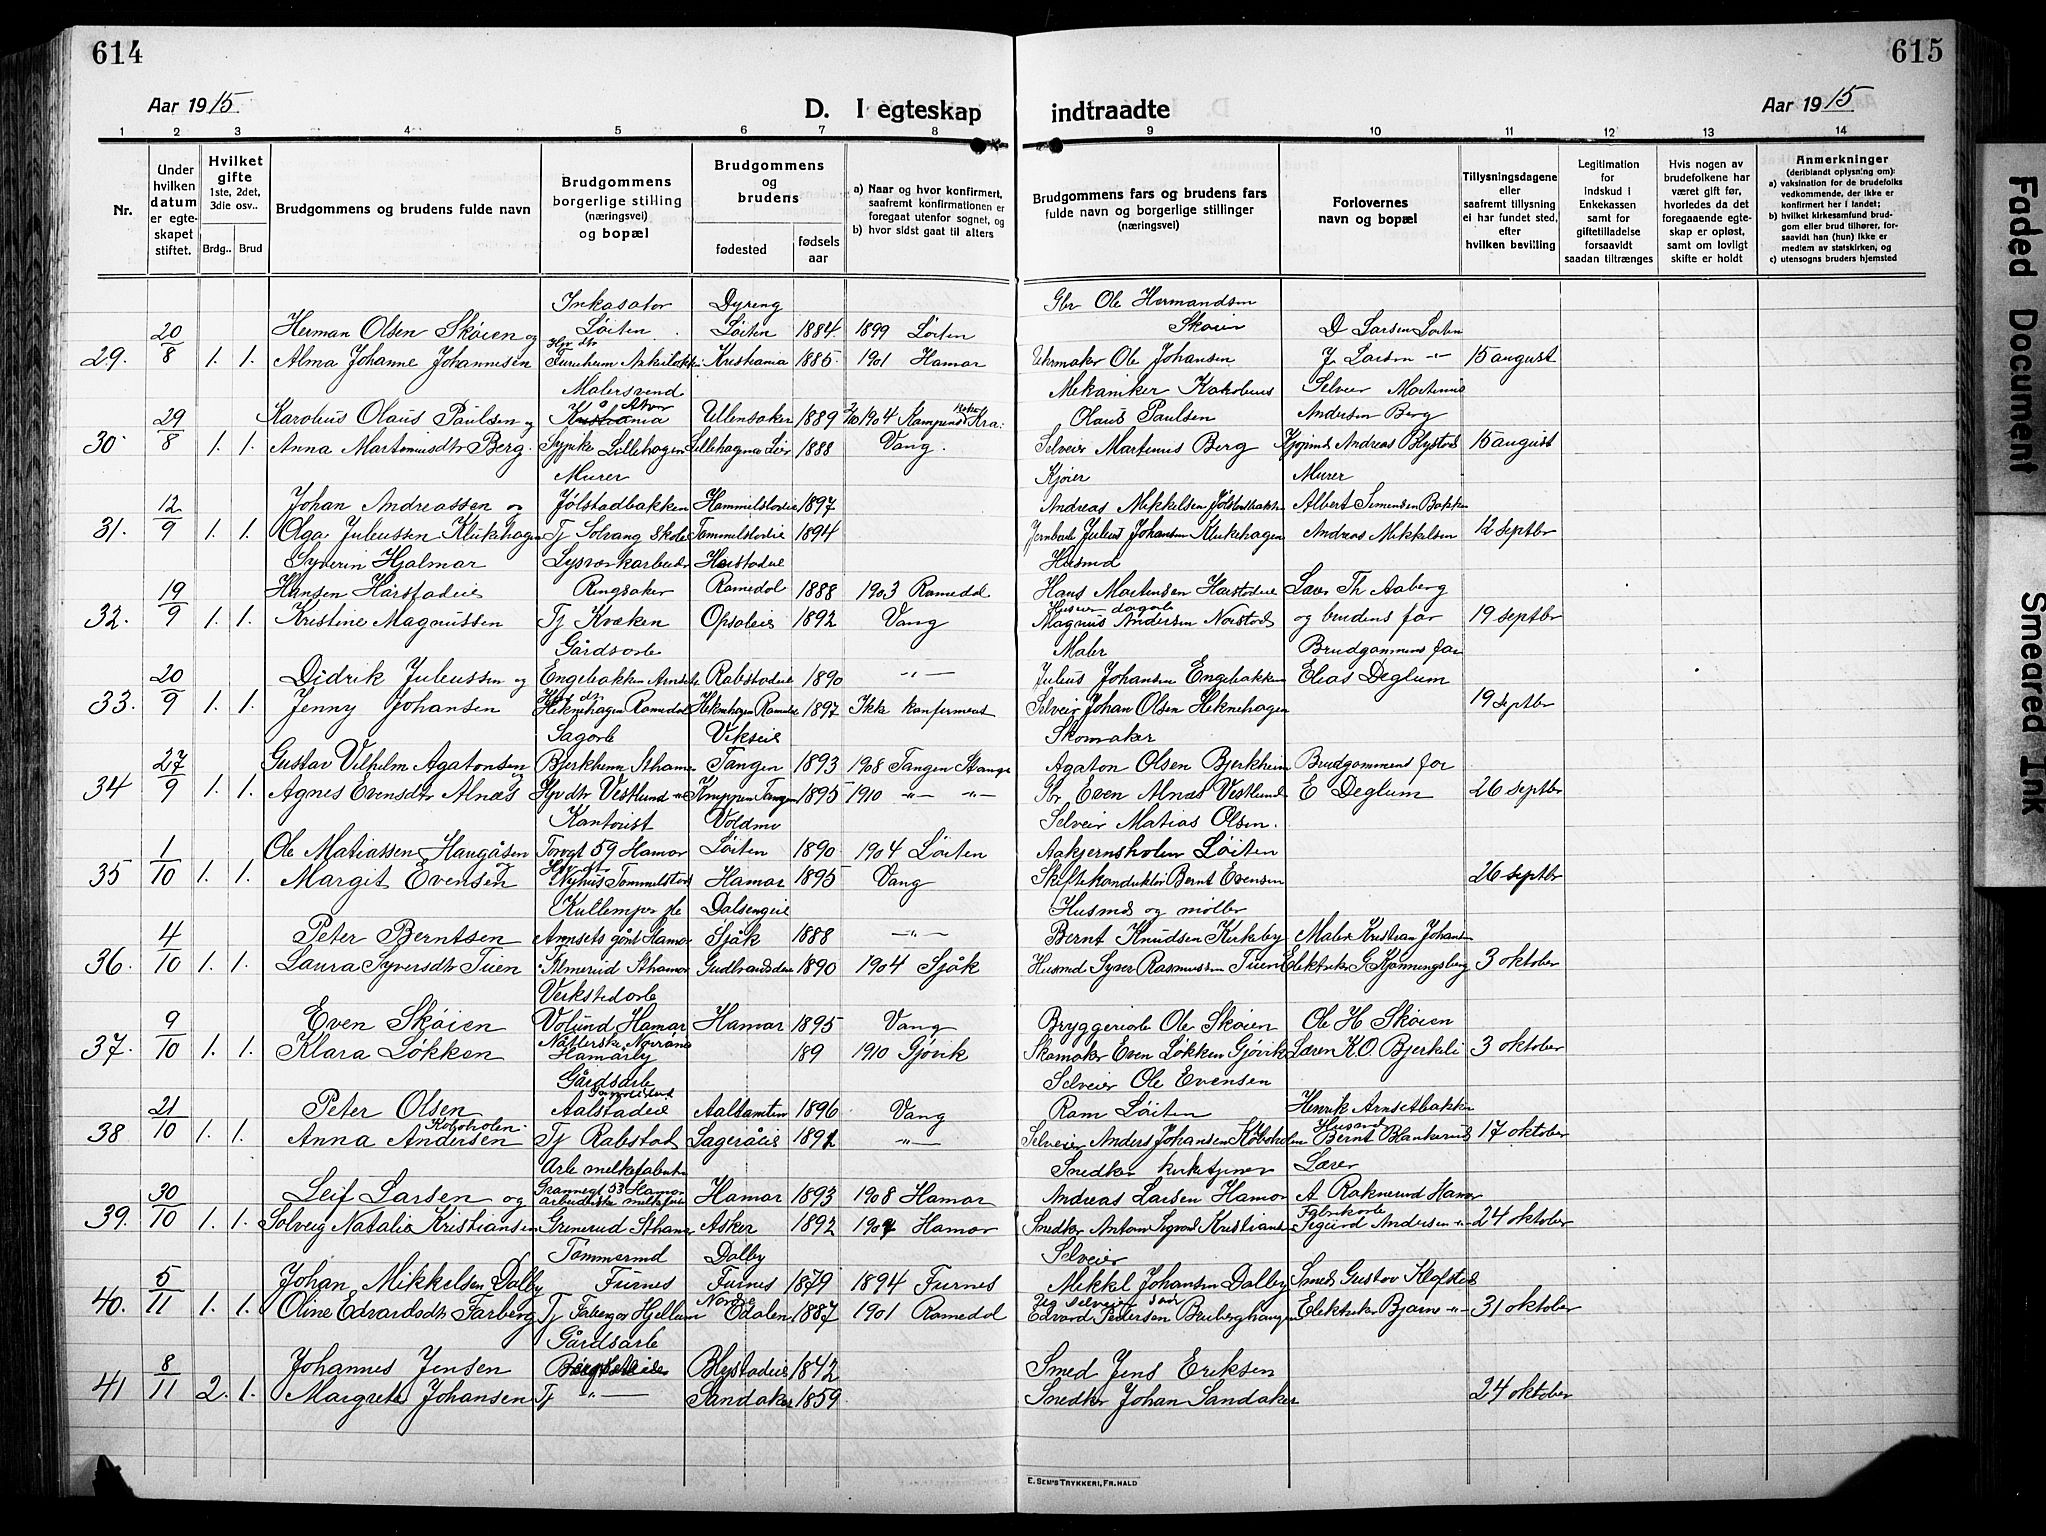 614
615
Aar 1915.
D. I egteskap
indtraadte
Aar 1915
1 2 3 4 5 6 7 8 9 10 11 12 13 14
Nr.
Under hvilken datum er egteskapet stiftet.
Hvilket gifte 1ste, 2det, 3die osv..
Brdg.. Brud
Brudgommens og brudens fulde navn
Brudgommens borgerlige stilling (næringsvei) og bopæl
Brudgommens og brudens
fødested
fødsels aar
a) Naar og hvor konfirmert, saafremt konfirmationen er foregaat utenfor sognet, og
b) hvor sidst gaat til alters
Brudgommens fars og brudens fars fulde navn og borgerlige stillinger (næringsvei)
Forlovernes navn og bopæl
Tillysningsdagene eller saafremt tillysning ei har fundet sted, efter hvilken bevilling
Legitimation for indskud i Enkekassen samt for giftetilladelse forsaavidt saadan tiltrænges
Hvis nogen av brudefolkene har været gift før, hvorledes da det foregaaende egteskap er opløst, samt om lovligt skifte er holdt
Anmerkninger (deriblandt oplysning om):
a) vaksination for de brudefolks vedkommende, der ikke er konfirmert her i landet;
b) hvilket kirkesamfund brudgom eller brud tilhører, forsaavidt han (hun) ikke er medlem av statskirken, og
c) utensogns bruders hjemsted
Inkasator Dyreng Gbr Ole Hermandsen
20 Herman Olsen Skøien og Løiten Løiten 1884 1899 Løiten Skøien D Larsen Løiten
29. 8 1. 1. Alma Johanne Johannesen Furuheim Kristiania 1885 1901 Hamar Uhrmaker Ole Johansen J. Larsen -"- 15 august
Malersvend Mekaniker Karolius Selveier Martenius
29 Karolius Olaus Paulsen og Kristiania Ullensaker 1889 1904 Kampens Kra: Olaus Paulsen Andersen Berg
30 8 1. 1. Anna Marteniusdtr Berg. Sypike Lillehagen Lillehagen 1888 Vang. Selveier Martenius Berg Andreas Blystad 15 august
Murer Kjører Murer
12 Johan Andreassen og Jølstadbakken 1897 Andreas Mikkelsen Jølstadbakken Albert Simensen Bakken
31. 9 1. 1. Olga Juliussen Klukehagen Tj Solvang Skole Tommelstadeie 1894 Julius Johansen Klukehagen Andreas Mikkelsen 12 septbr
Syverin Hjalmar Harstadeie Husmd
19 Hansen Harstadeie Ringsaker Romedal 1888 1903 Romedal Hans Martensen Harstadeie Lars Th Aaberg
32. 9 1. 1. Kristine Magnussen Tj Kvæken Opsaleie 1892 Vang Magnus Andersen Norstad og brudens far 19 septbr
Gårdsarb Maler Brudgommens far
20 Didrik Juliussen og Engebakken Rabstadeie 1890 -"- Julius Johansen Engebakken Elias Deglum
33. 9 1. 1. Jenny Johansen Heknehagen Romedal Heknehagen 1897 Ikke konfirmert Selveier Johan Olsen Heknehagen 19 septbr
Sagarb Vikseie Skomaker
27 Gustav Vilhelm Agatonsen Bjerkheim Tangen 1893 1908 Tangen Stange Agaton Olsen Bjerkheim Brudgommens far
34 9 1. 1. Agnes Evensdtr Alnæs Hjv dtr Vestlund 1895 1910 -"- -"- Gbr Even Alnæs Vestlund E Deglum 26 septbr
Kantorist Voldmo Selveier Matias Olsen.
1 Ole Matiassen Haugåsen Torvgt 59 Hamar Løiten 1890 1904 Løiten Løiten
35 10 1. 1. Margit Evensen Nyhus Tommelstad Hamar 1895 Vang Bernt Evensen 26 septbr
Dalsengeie Husmd og møller
4 Peter Berntsen Sjåk 1888 -"- Bernt Knudsen Kirkeby Maler Kristian Johansen
36. 10 1. 1. Laura Syversdtr Tuen Almerud 1890 1904 Sjåk Husmd Syver Rasmussen Tuen Elektriker 3 oktober
Verkstedarb
9 Even Skøien Volund Hamar Hamar 1895 Vang Bryggeriarb Ole Skøien Ole H Skøien
37. 10 1. 1. Klara Løkken Hamarby 189 1910 Gjøvik Skomaker Even Løkken Gjøvik Lærer K.O. Bjerkeli 3 oktober
Gårdsarb Selveier Ole Evensen
21 Peter Olsen Aalstadeie 1896 Vang Ram Løiten Henrik Arnsetbakken
38 10 1. 1. Anna Andersen Koboholen Tj Rabstad 1892 -"- Selveier Anders Johansen Koboholen Husmd Bernt Blankerud 17 oktober
Arb melkefabriken Snedker kirketjener Lærer
30 Leif Larsen og Grønnegt 53 Hamar Hamar 1893 1908 Hamar Andreas Larsen Hamar A Raknerud Hamar
39. 10 1. 1. Solveig Natalie Kristiansen Grinerud Asker 1892 1907 Hamar Snedker Anton Sigvard Kristiansen Sigurd Andersen -"- 24 oktober
Tømmermd Dalby Selveier
5 Johan Mikkelsen Dalby Furnes Furnes 1879 1894 Furnes Mikkel Johansen Dalby Smed Gustav Klofstad
40. 11 1. 1. Oline Edvardsdtr Farberg Tj Farberg Hjellum Nordre Odalen 1887 1901 Romedal Edvard Pedersen Elektriker Bjarne -"- 31 oktober
Gårdsarb
8 Johannes Jensen Blystadeie 1842 Smed Jens Eriksen
41 11 2. 1. Margrete Johansen Tj -"- Sandaker 1859 Snedker Johan Sandaker 24 oktober
E. SEM'S TRYKKERI, FR.HALD
Faded Document
Smeared Ink